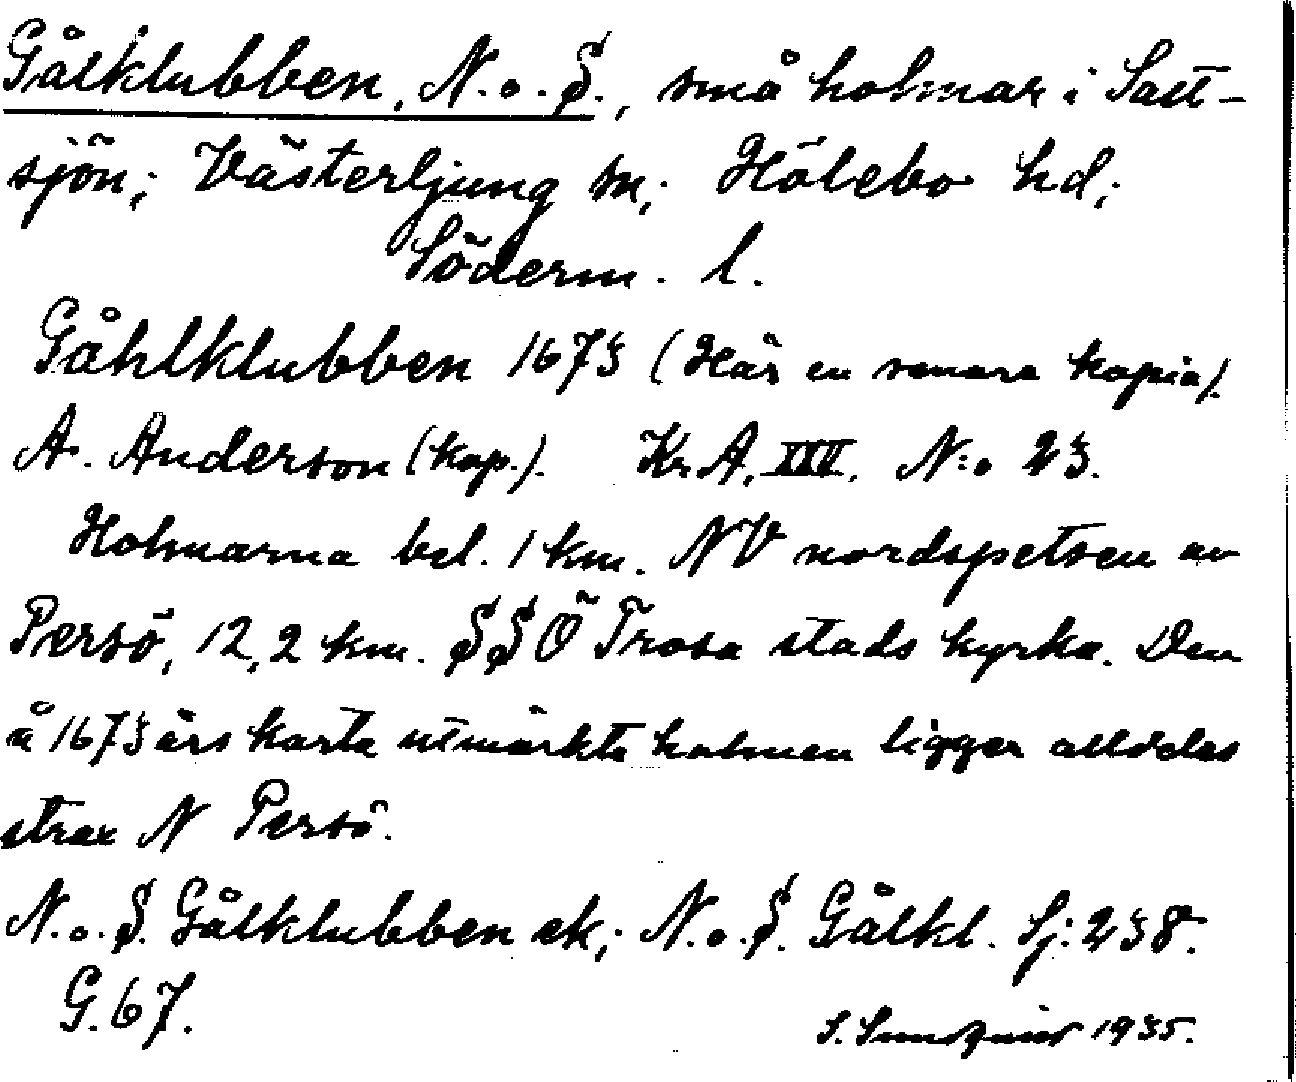 Gålklubben, N. o. S., små holmar i Salt-
sjön; Västerljung sn; Hölebo hd;
Söderm. l.
Gåhlklubben 1673 (Här en senare kopia).
A. Anderson (kop.). Kr. A. XXV. N:o 23.
Holmarna bel. 1 km. NV nordspetsen av
Persö, 12,2 km. SSÖ Trosa stads kyrka. Den
å 1673 års karta utmärkta holmen ligger alldeles
strax N Persö.
N. o. S. Gålklubben ek; N. o. S. Gålkl. Sj: 238.
G. 67.
S. Sundqvist 1935.